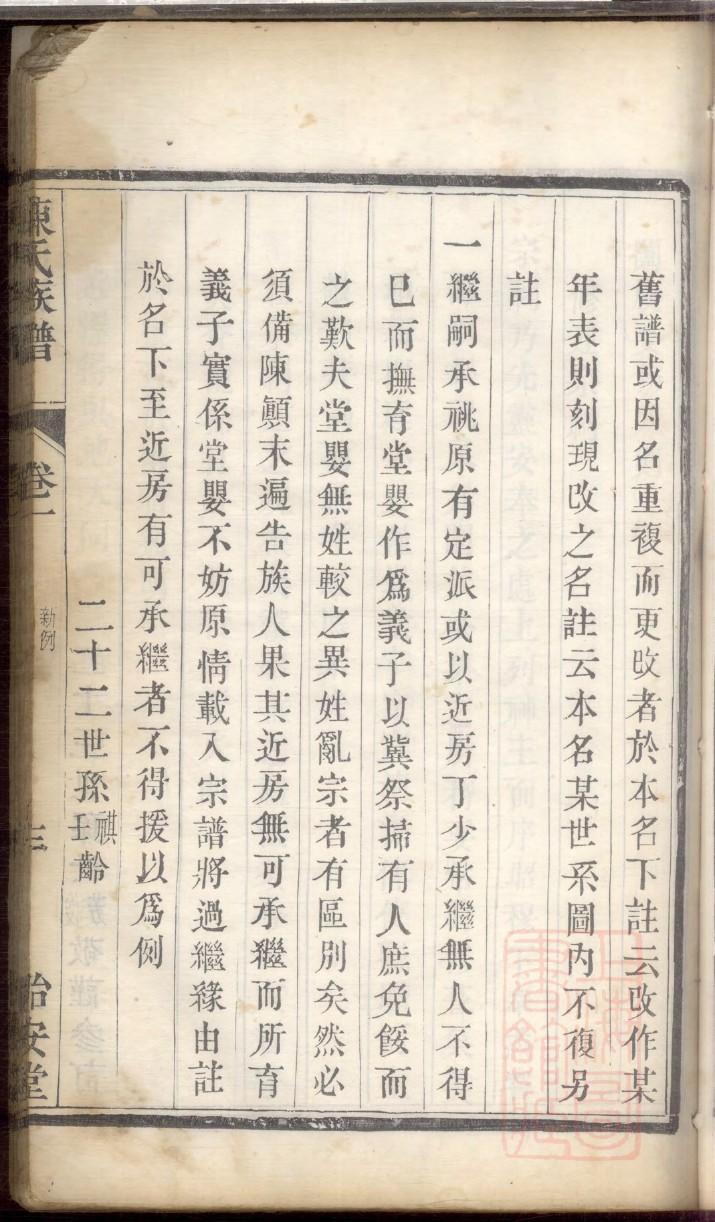 舊譜或因名重複而更改者於本名下註云改作某
年表則刻現改之名註云本名某世系圖內不復另
註
一繼嗣承祧原有定派或以近房丁少承繼無人不得
已而撫育堂嬰作爲義子以冀祭掃有人庶免餒而
之歎夫堂嬰無姓較之異姓亂宗者有區別矣然必
須備陳顚末遍告族人果其近房無可承繼而所育
義子實係堂嬰不妨原情載入宗譜將過繼緣由註
於名下至近房有可承繼者不得援以爲例
二十二世孫祺壬齡
陳氏族譜
卷一
新例
三
怡安堂